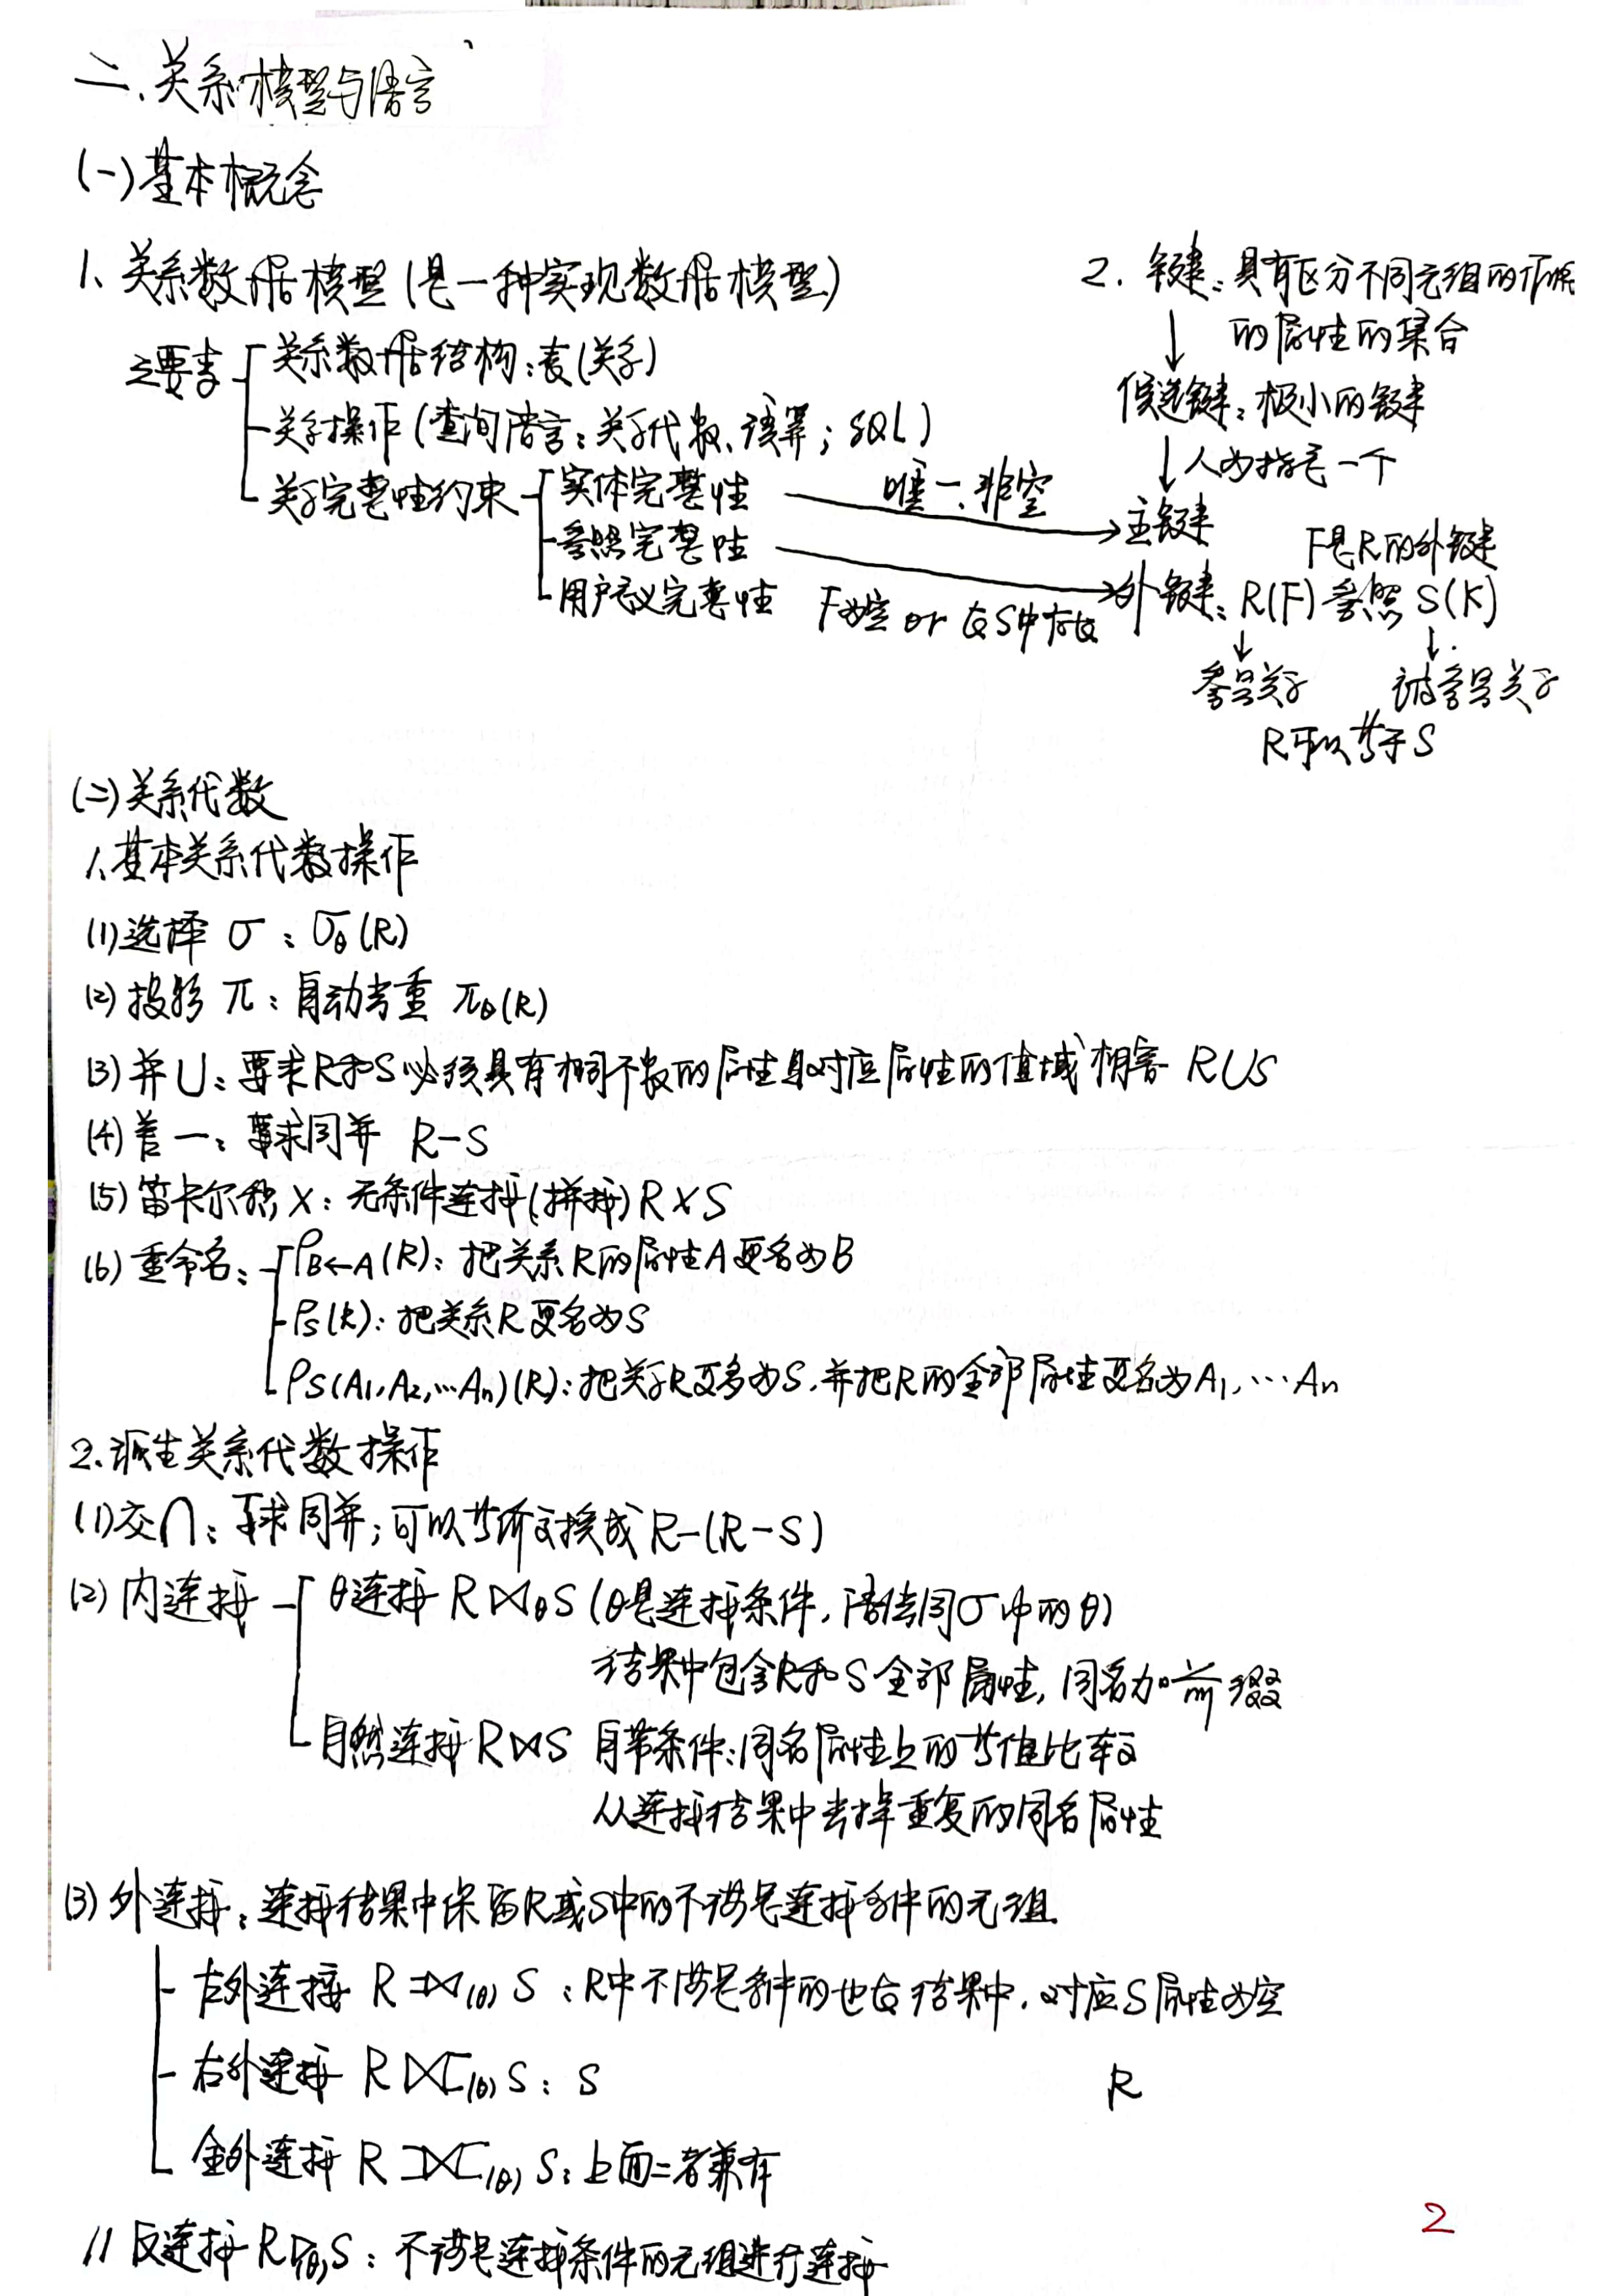 二、关系模型与语言
(一)基本概念
1、关系数据模型(是一种实现数据模型)
三要素
关系数据结构:表(关系)
关系操作(查询语言:关系代数、演算;SQL)
关系完整性约束
实体完整性
参照完整性
用户定义完整性
唯一、非空
F为空 or 在S中存在
2. 键:具有区分不同元组的作用
的属性的集合
候选键:极小的键
人为指定一个
主键
F是R的外键
外键:R(F)参照S(K)
参照关系 被参照关系
R可以等于S
(二)关系代数
1.基本关系代数操作
(1)选择 σ:σθ(R)
(2)投影 π:自动去重 πθ(R)
(3)并∪:要求R和S必须具有相同个数的属性且对应属性的值域相容 R∪S
(4)差 —:要求同并 R-S
(5)笛卡尔积×:无条件连接(拼接)R×S
(6)重命名:
ρB←A(R):把关系R的属性A更名为B
ρS(R):把关系R更名为S
ρS(A1,A2,…An)(R):把关系R更名为S,并把R的全部属性更名为A1,…An
2.派生关系代数操作
(1)交∩:要求同并;可以等价变换成R-(R-S)
(2)内连接
θ连接 R⋈θS(θ是连接条件,语法同σ中的θ)
结果中包含R和S全部属性,同名加前缀
自然连接R⋈S 自带条件:同名属性上的等值比较
从连接结果中去掉重复的同名属性
(3)外连接:连接结果中保留R或S中的不满足连接条件的元组
左外连接 R⟕(θ)S:R中不满足条件的也在结果中,对应S属性为空
右外连接 R⟖(θ)S:S R
全外连接 R⟗(θ)S:上面二者兼有
反连接R▷(θ)S:不满足连接条件的元组进行连接
2